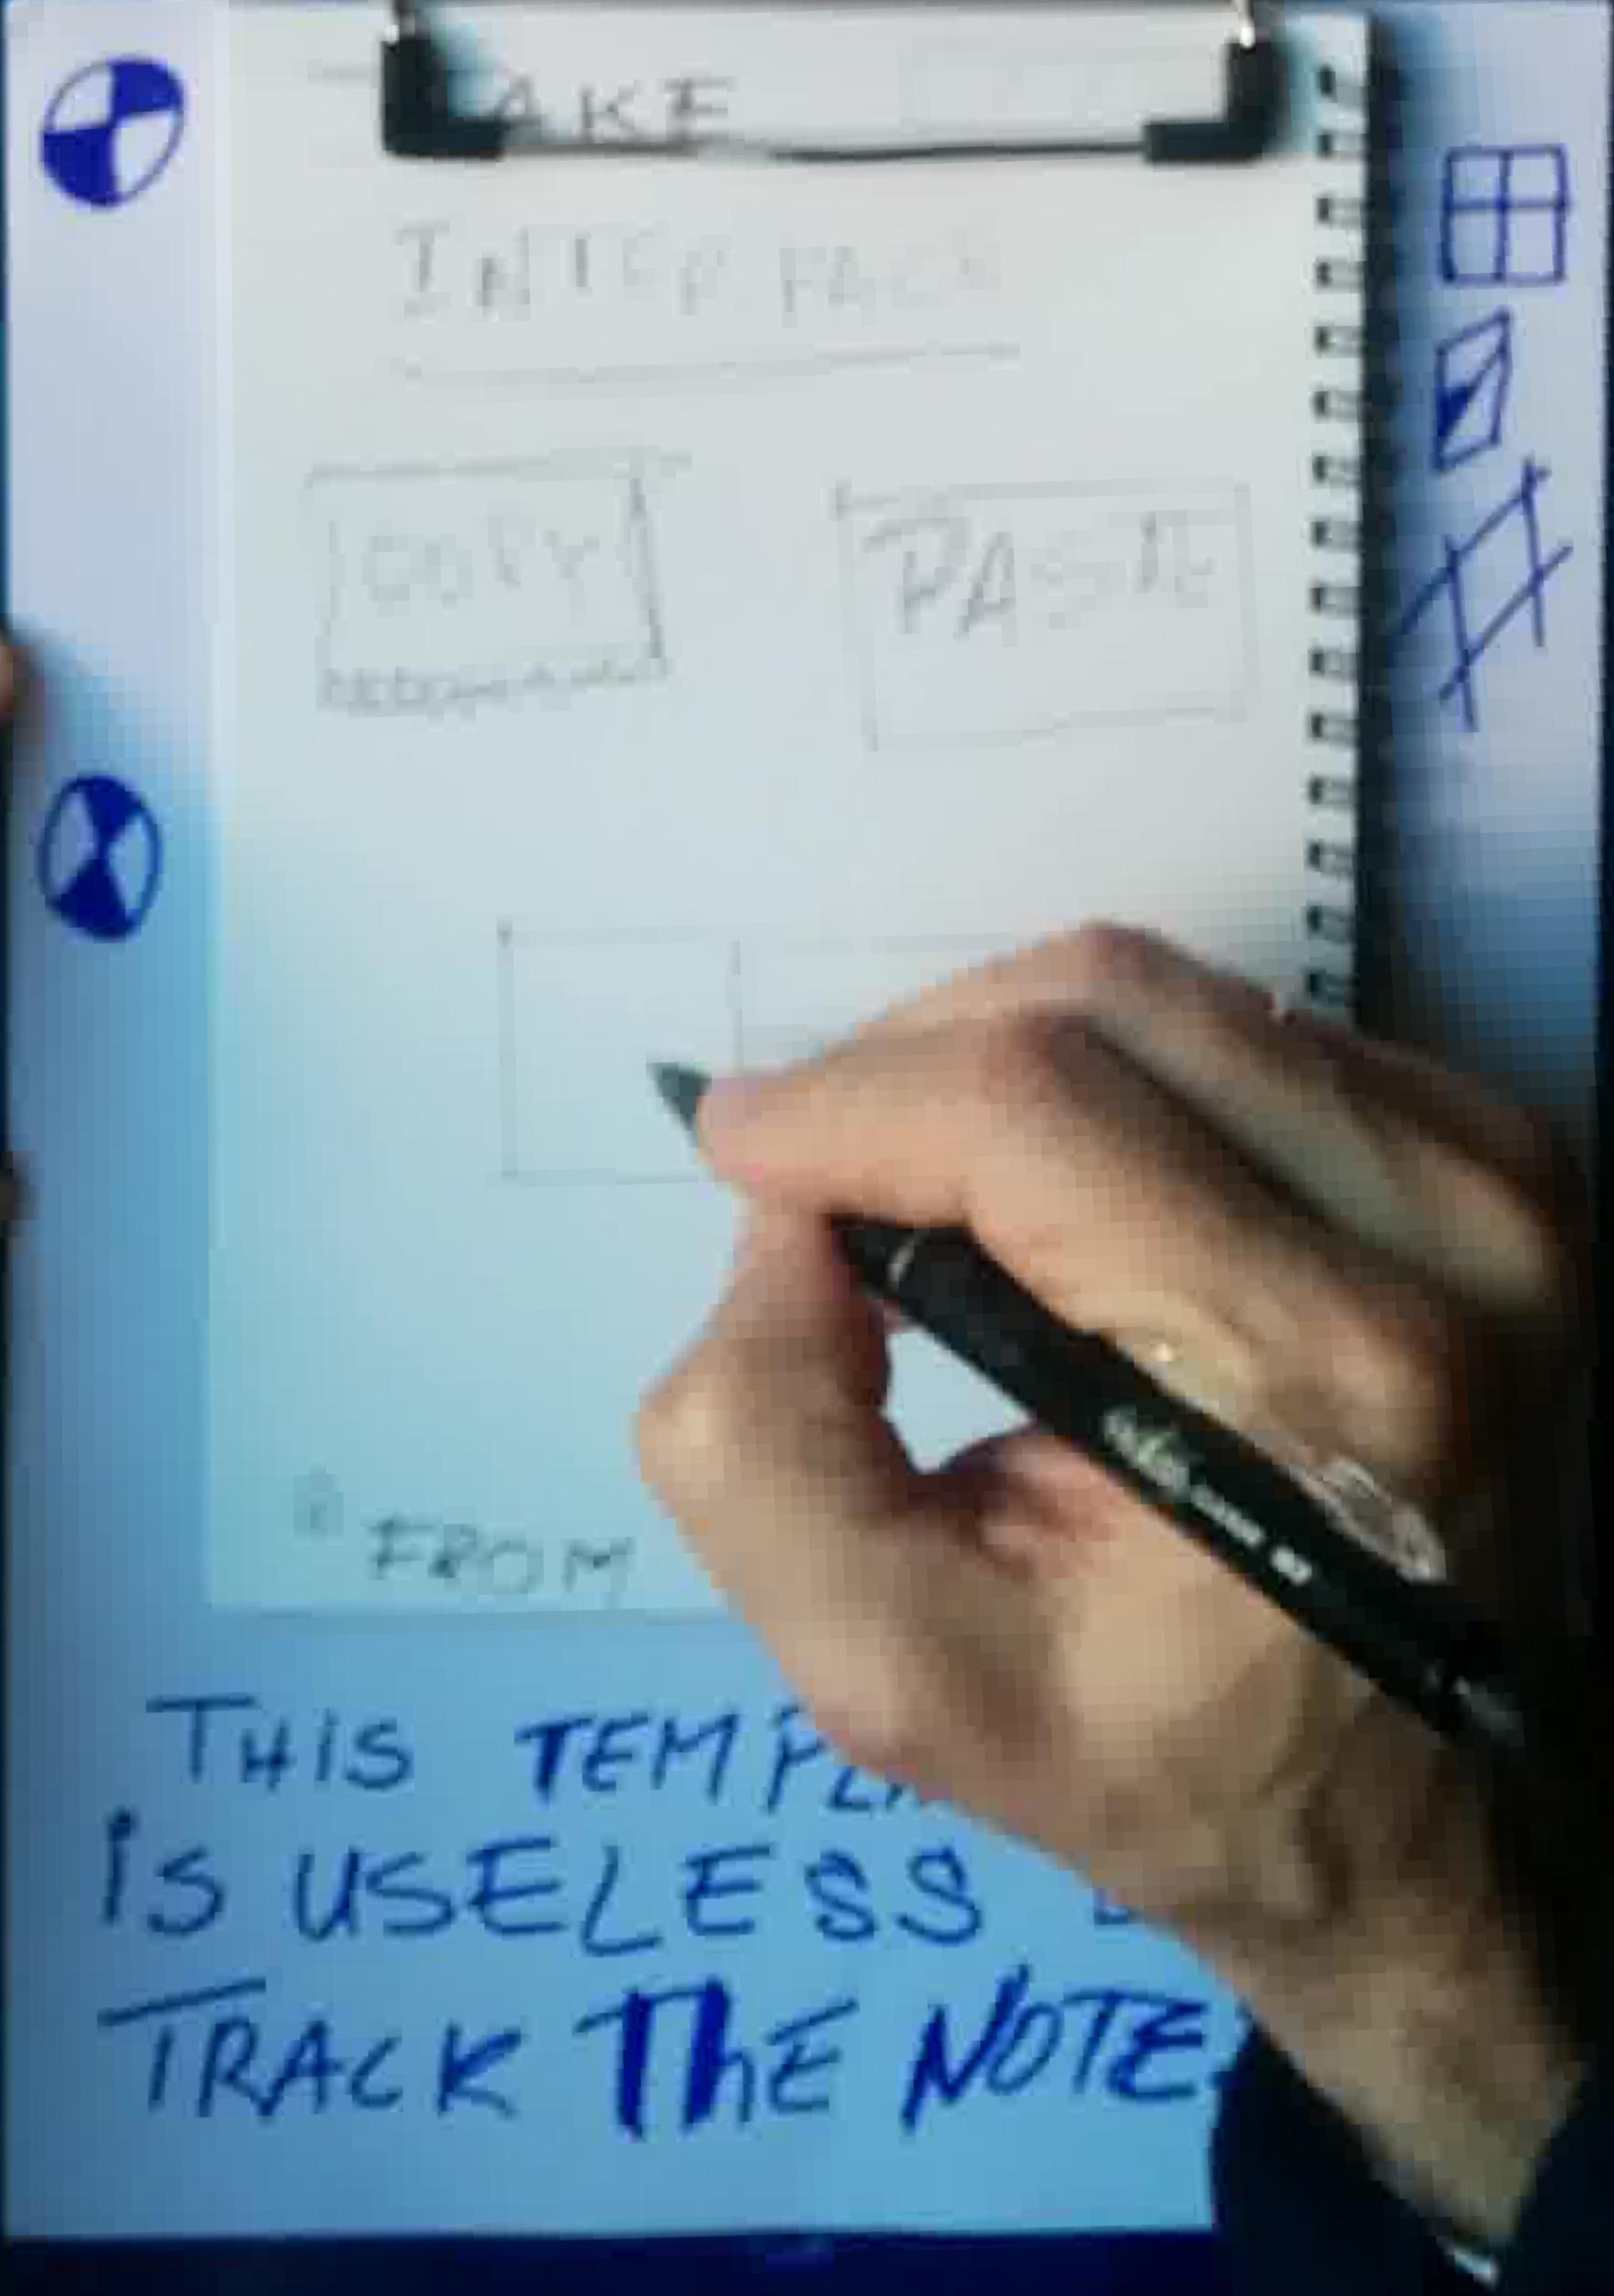 AKE
INTERFACE
COPY
PASTE
FROM
THIS TEMPLA
iS USELESS
TRACK ThE NOTE